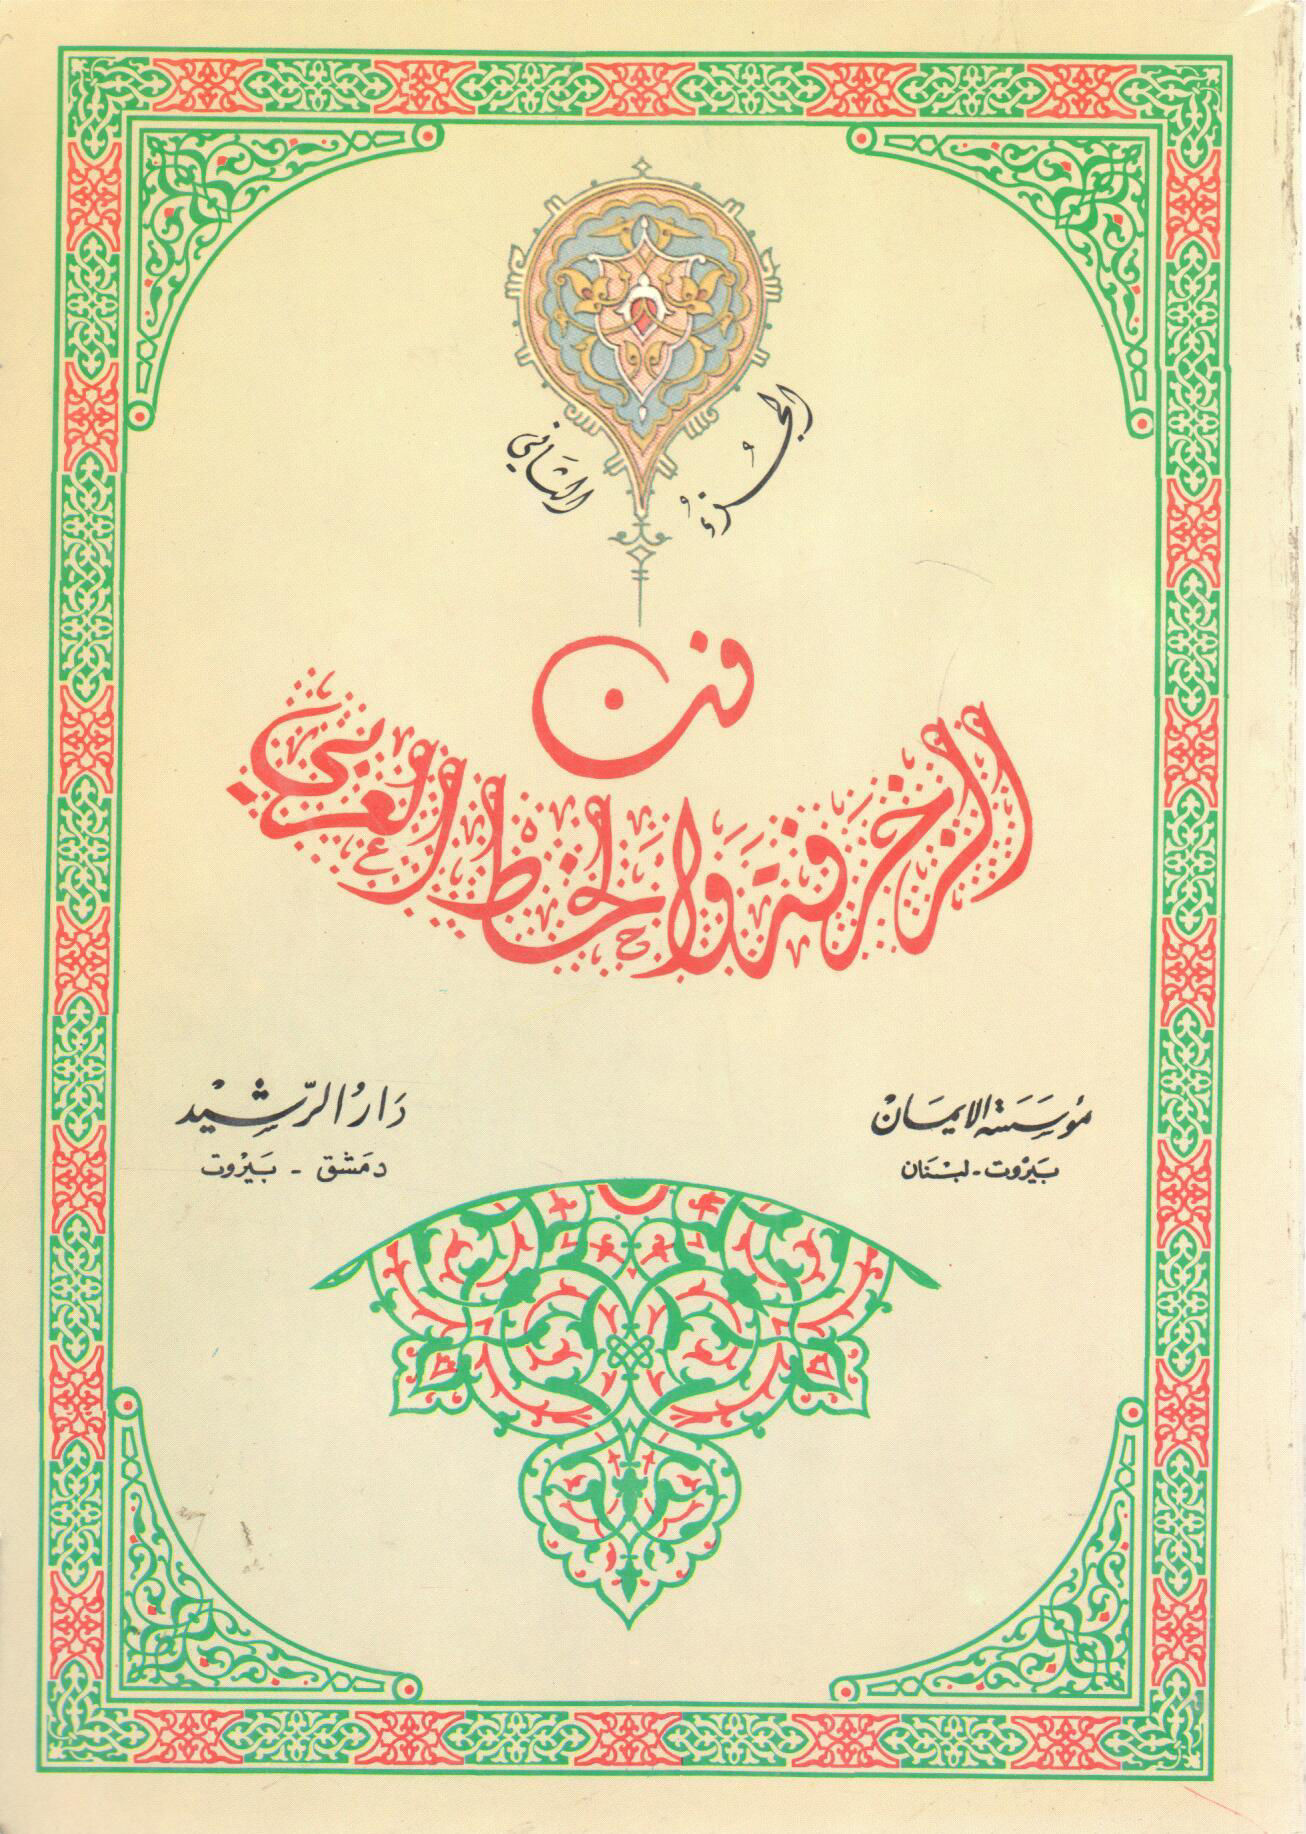 الجُزءُ الثَّاني
فن
الزخرفة والخط العربي
مؤسَسَة الايمَان
بَيْروت - لبْنَان
دَارُ الرّشِيْد
دمَشق - بَيْروت